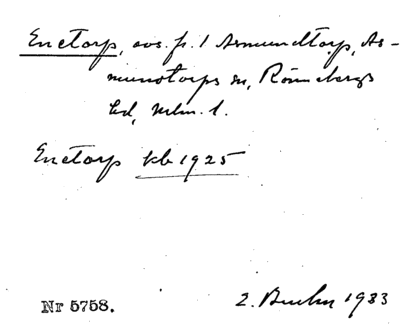 Enetorp, avs. fr. 1 Asmundtorp, As-
mundtorps sn, Rönnebergs
hd, Mlm. l.
Enetorp kb 1925
Nr 5758.
2. 1933